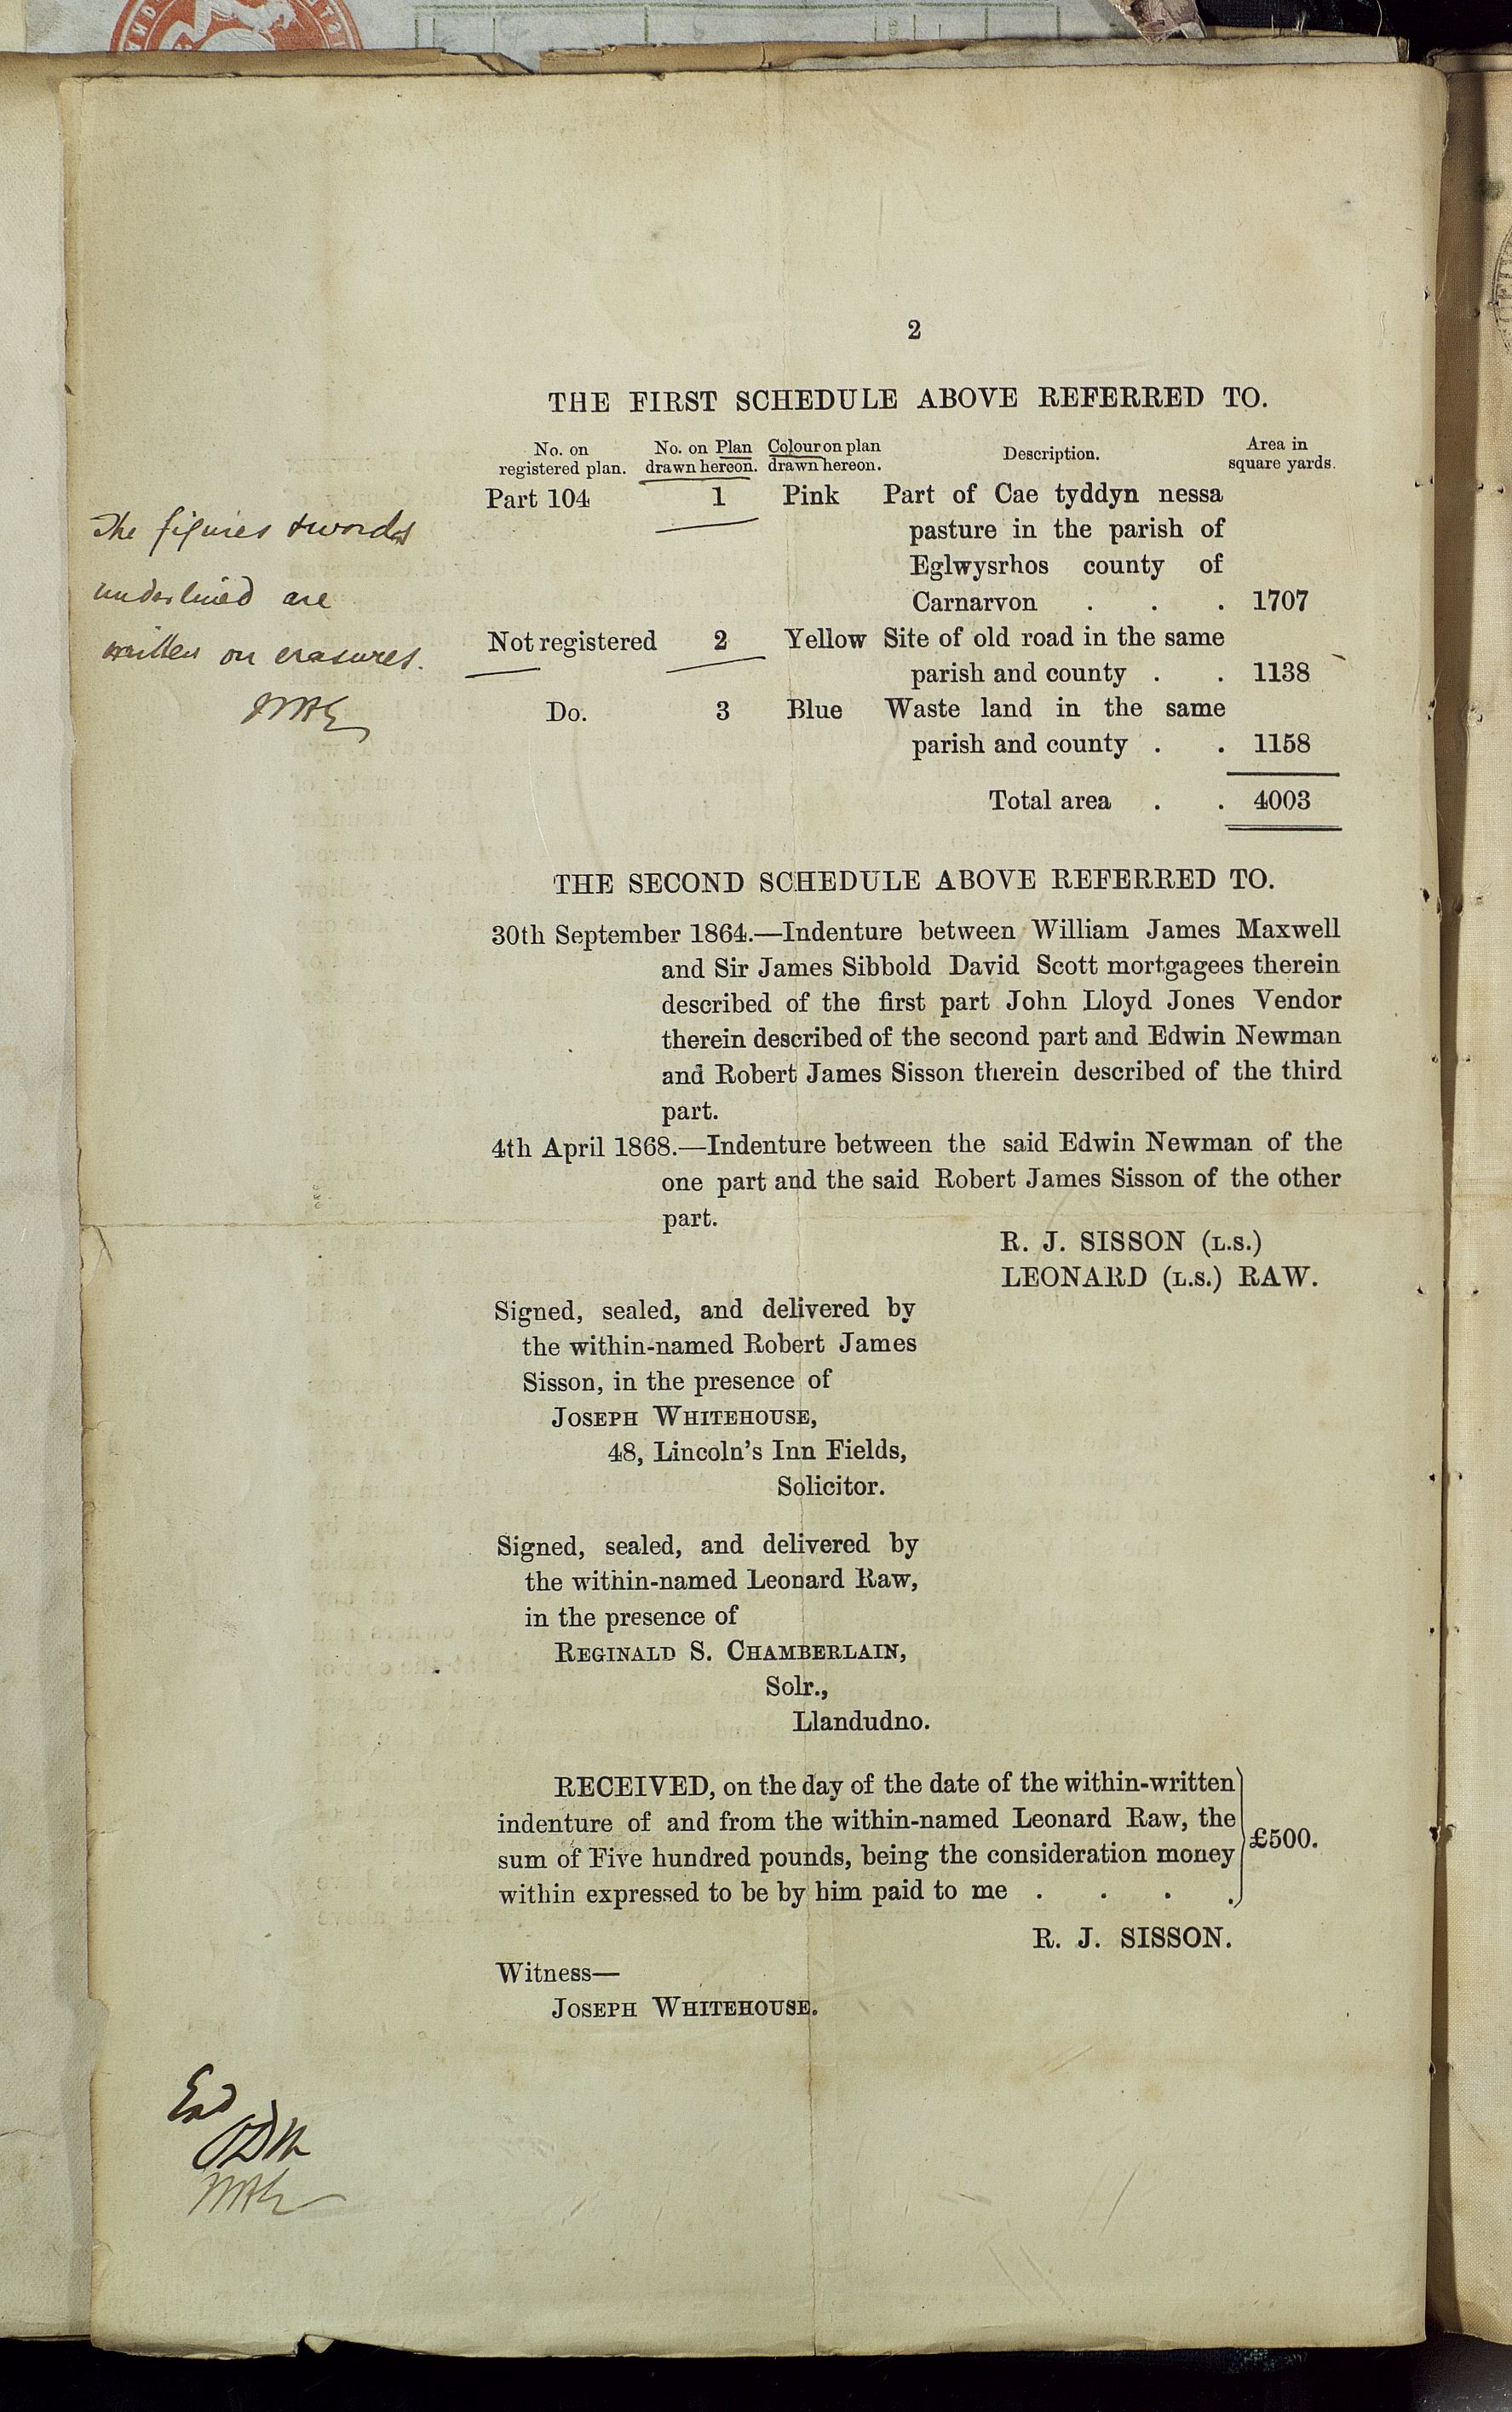 2
THE FIRST SCHEDULE ABOVE REFERRED TO.
No. on registered plan. No. on Plan drawn hereon. Colour on plan drawn hereon. Description. Area in square yards.
Part 104 1 Pink Part of Cae tyddyn nessa
pasture in the parish of
Eglwysrhos county of
Carnarvon . . . 1707
Not registered 2 Yellow Site of old road in the same
parish and county . . 1138
Do. 3 Blue Waste land in the same
parish and county . . 1158
Total area . . 4003
The figures & words
underlined are
written on erasures.
THE SECOND SCHEDULE ABOVE REFERRED TO.
30th September 1864.—Indenture between William James Maxwell
and Sir James Sibbold David Scott mortgagees therein
described of the first part John Lloyd Jones Vendor
therein described of the second part and Edwin Newman
and Robert James Sisson therein described of the third
part.
4th April 1868.—Indenture between the said Edwin Newman of the
one part and the said Robert James Sisson of the other
part.
R. J. SISSON (L.S.)
LEONARD (L.S.) RAW.
Signed, sealed, and delivered by
the within-named Robert James
Sisson, in the presence of
JOSEPH WHITEHOUSE,
48, Lincoln's Inn Fields,
Solicitor.
Signed, sealed, and delivered by
the within-named Leonard Raw,
in the presence of
REGINALD S. CHAMBERLAIN,
Solr.,
Llandudno.
RECEIVED, on the day of the date of the within-written
indenture of and from the within-named Leonard Raw, the
sum of Five hundred pounds, being the consideration money
within expressed to be by him paid to me . . . .
£500.
R. J. SISSON.
Witness—
JOSEPH WHITEHOUSE.